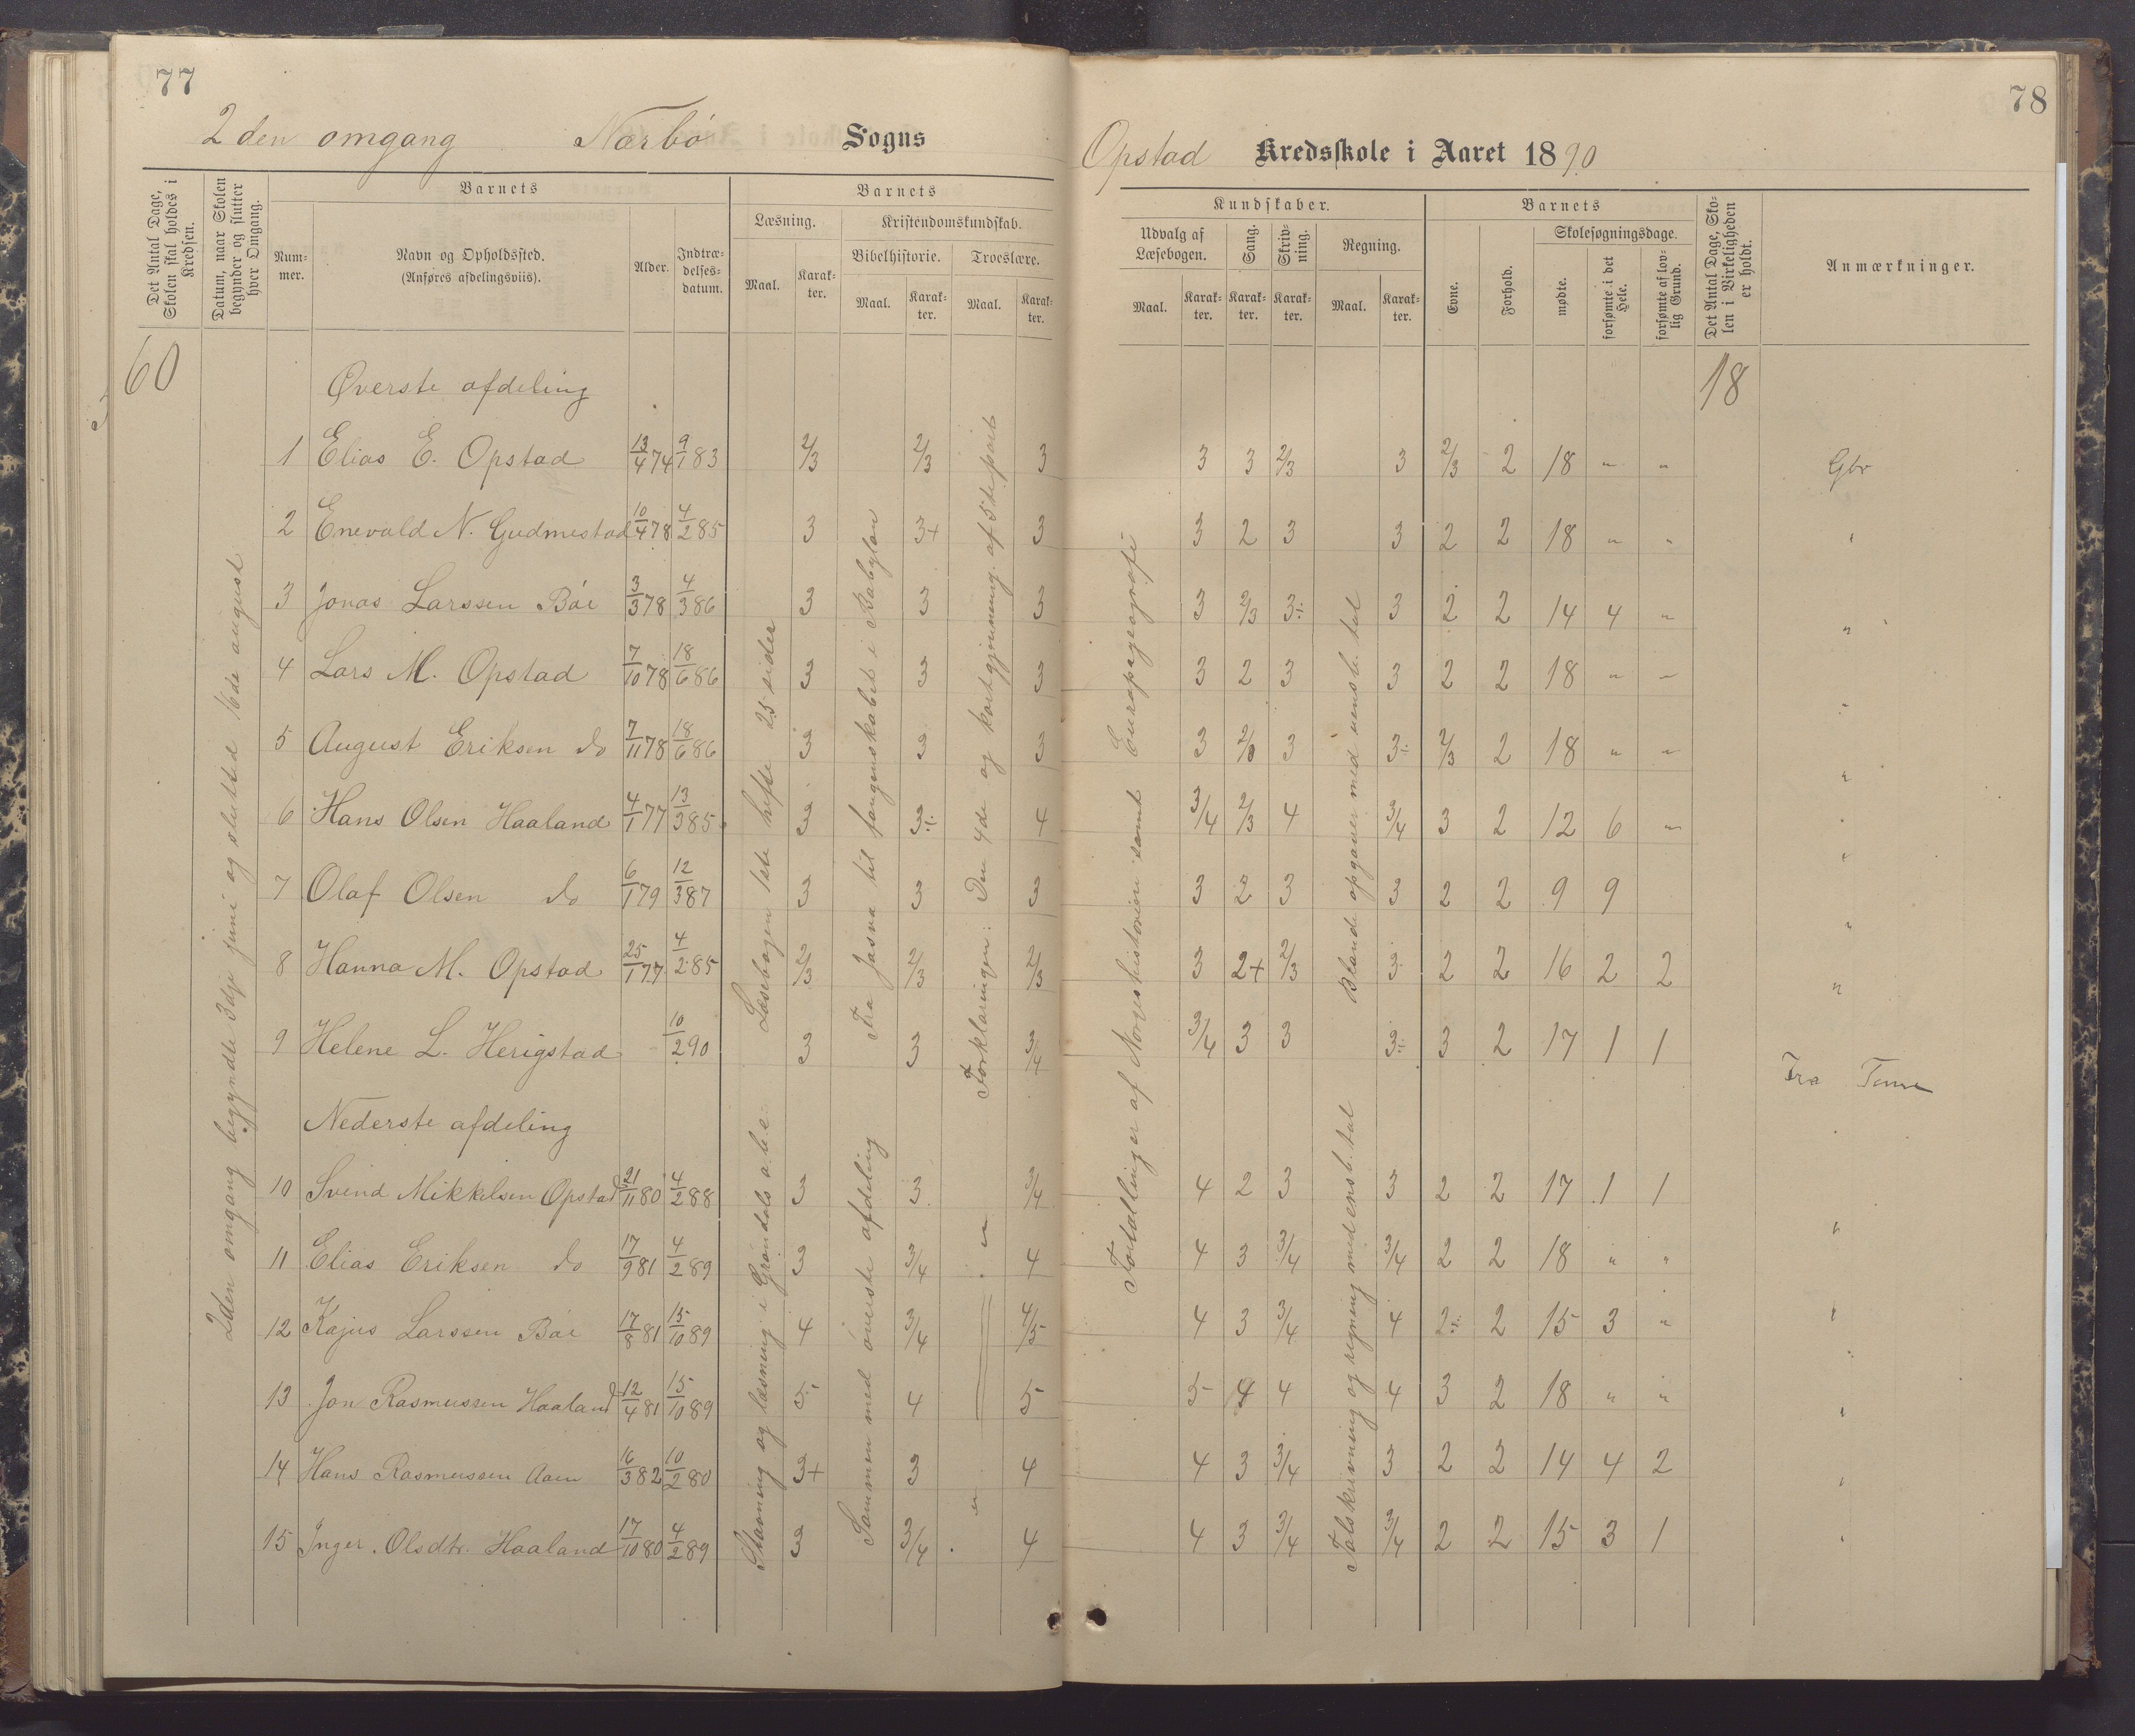 77
2den omgang Nærbö Sogns
Det Antal Dage, Skolen skal holdes i Kredsen.
Datum, naar Skolen begynder og slutter hver Omgang.
Barnets
Nummer.
Navn og Opholdssted.
(Anføres afdelingsviis).
Alder.
Indtrædelsesdatum.
Barnets
Læsning.
Maal.
Karakter.
Kristendomskundskab.
Bibelhistorie.
Maal.
Karakter.
Troeslære.
Maal.
Karakter.
60
2den omgang begyndte 3dje juni og slutted 16de august
Læsebogen 1ste hefte 25 sider
Fra Josva til fangenskabet i Babylon
Forklaringen: Den 4de og kort gjennemg. af 5te part
Stavning og læsning i Grøndals abc
Sammen med överste afdeling
Øverste afdeling
1 Elias E. Opstad 13/4 74 9/1 83 2/3 2/3 3
2 Enevald N. Gudmestad 10/4 78 4/2 85 3 3+ 3
3 Jonas Larssen Böe 3/3 78 4/3 86 3 3 3
4 Lars M. Opstad 7/10 78 18/6 86 3 3 3
5 August Eriksen do 7/11 78 18/6 86 3 3 3
6 Hans Olsen Haaland 4/1 77 13/3 85 3 3÷ 4
7 Olaf Olsen do 6/1 79 12/3 87 3 3 3
8 Hanna M. Opstad 25/1 77 4/2 85 2/3 2/3 2/3
9 Helene L. Herigstad 10/2 90 3 3 3/4
Nederste afdeling
10 Svend Mikkelsen Opstad 21/11 80 4/2 88 3 3 3/4
11 Elias Eriksen do 17/9 81 4/2 89 3 3/4 " 4
12 Kajus Larssen Böe 17/8 81 15/10 89 4 3/4 4/5
13 Jon Rasmussen Haaland 12/4 81 15/10 89 5 4 5
14 Hans Rasmussen Aaen 16/3 82 10/2 80 3+ 3 4
15 Inger Olsdtr. Haaland 17/10 80 4/2 89 3 3/4 " 4
78
Opstad Kredsskole i Aaret 1890
Kundskaber.
Udvalg af Læsebogen.
Maal.
Karakter.
Sang.
Karakter.
Skrivning.
Karakter.
Regning.
Maal.
Karakter.
Barnets
Evne.
Forhold.
Skolesøgningsdage.
mødte.
forsømte i det Hele.
forsømte af lovlig Grund.
Det Antal Dage, Skolen i Virkeligheden er holdt.
Anmærkninger.
18
Fortællinger af Norgeshistorien samt Europas geografi
Blande opgaver med uensb. tal
Talskrivning og regning med ensb. tal
3 3 2/3 3 2/3 2 18 " " Gbr
3 2 3 3 2 2 18 " " "
3 2/3 3÷ 3 2 2 14 4 " "
3 2 3 3 2 2 18 " " "
3 2/3 3 3÷ 2/3 2 18 " " "
3/4 2/3 4 3/4 3 2 12 6 " "
3 2 3 3 2 2 9 9 "
3 2+ 2/3 3 2 2 16 2 2 "
3/4 3 3 3÷ 3 2 17 1 1 Fra
4 2 3 3 2 2 17 1 1
4 3 3/4 3/4 2 2 18 " " "
4 3 3/4 4 2÷ 2 15 3 " "
5 4 4 4 3 2 18 " " "
4 3 3/4 3 2 2 14 4 2 "
4 3 3/4 3/4 2 2 15 3 1 "